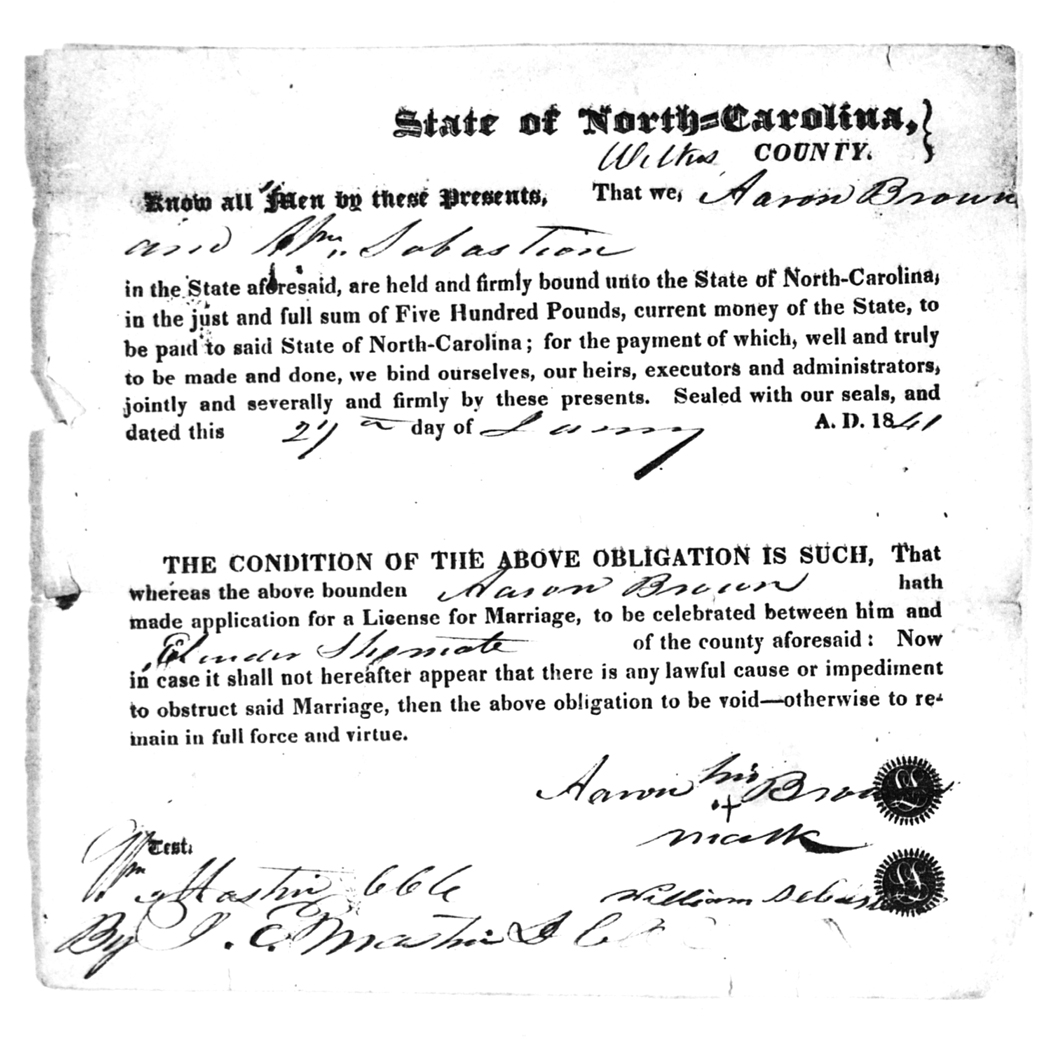 State of North-Carolina,
Wilkes COUNTY.
Know all Men by these Presents, That we, Aaron Brown
and Wm. Sebastion
in the State aforesaid, are held and firmly bound unto the State of North-Carolina,
in the just and full sum of Five Hundred Pounds, current money of the State, to
be paid to said State of North-Carolina; for the payment of which, well and truly
to be made and done, we bind ourselves, our heirs, executors and administrators,
jointly and severally and firmly by these presents. Sealed with our seals, and
dated this day of A. D. 1841
THE CONDITION OF THE ABOVE OBLIGATION IS SUCH, That
whereas the above bounden Aaron Brown hath
made application for a License for Marriage, to be celebrated between him and
of the county aforesaid: Now
in case it shall not hereafter appear that there is any lawful cause or impediment
to obstruct said Marriage, then the above obligation to be void—otherwise to re-
main in full force and virtue.
Aaron his Brown
+
mark
Test.
Wm
William
By